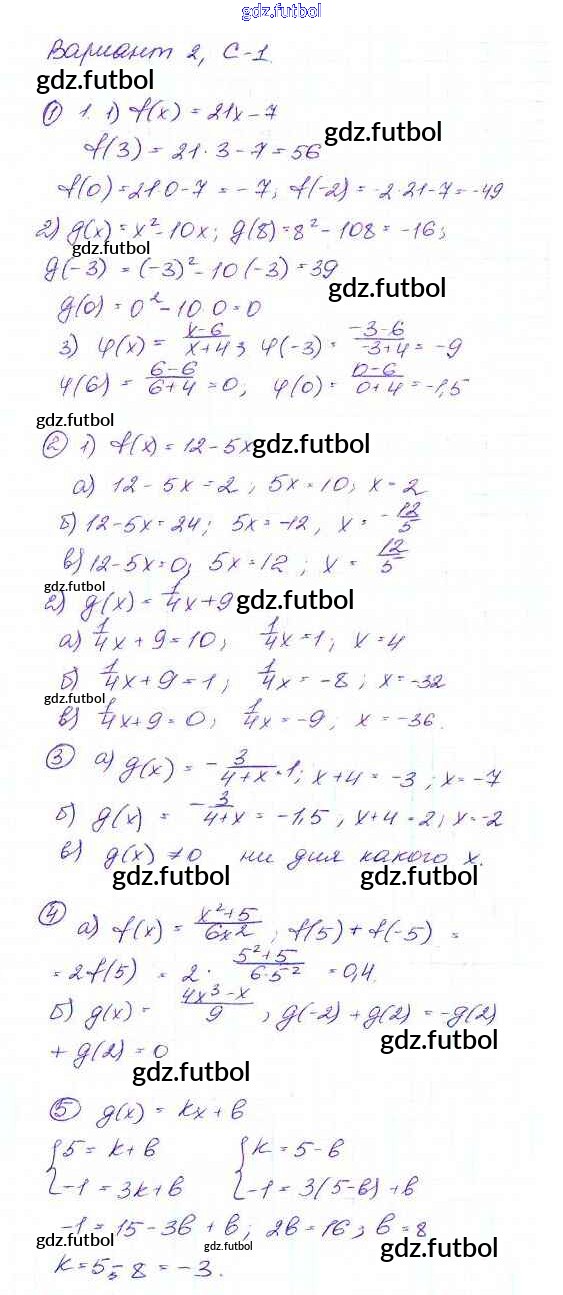 gdz.futbol
Вариант 2, С-1.
gdz.futbol
① 1. 1) f(x) = 21x - 7
gdz.futbol
f(3) = 21·3 - 7 = 56
f(0) = 21·0 - 7 = -7; f(-2) = -2·21-7 = -49
2) g(x) = x² - 10x; g(8) = 8² - 108 = -16;
gdz.futbol
g(-3) = (-3)² - 10(-3) = 39
gdz.futbol
g(0) = 0² - 10·0 = 0
3) φ(x) = (x-6)/(x+4); φ(-3) = (-3-6)/(-3+4) = -9
φ(6) = (6-6)/(6+4) = 0, φ(0) = (0-6)/(0+4) = -1,5
gdz.futbol
② 1) f(x) = 12 - 5x
gdz.futbol
а) 12 - 5x = 2; 5x = 10; x = 2
б) 12 - 5x = 24; 5x = -12, x = -12/5
в) 12 - 5x = 0; 5x = 12; x = 12/5
gdz.futbol
2) g(x) = 1/4x + 9
gdz.futbol
а) 1/4x + 9 = 10; 1/4x = 1; x = 4
б) 1/4x + 9 = 1; 1/4x = -8; x = -32
gdz.futbol
в) 1/4x + 9 = 0; 1/4x = -9; x = -36.
③ а) g(x) = -3/(4+x) = 1; x + 4 = -3; x = -7
б) g(x) = -3/(4+x) = -1,5, x + 4 = 2; x = -2
в) g(x) ≠ 0 ни для какого x.
gdz.futbol gdz.futbol
④ а) f(x) = (x²+5)/(6x²); f(5) + f(-5) =
= 2f(5) = 2·(5²+5)/(6·5²) = 0,4.
б) g(x) = (4x³-x)/9, g(-2) + g(2) = -g(2)
gdz.futbol
+ g(2) = 0
gdz.futbol
⑤ g(x) = kx + b
{5 = k + b {k = 5 - b
{-1 = 3k + b {-1 = 3(5-b) + b
-1 = 15 - 3b + b; 2b = 16; b = 8
gdz.futbol gdz.futbol gdz.futbol
k = 5 - 8 = -3.